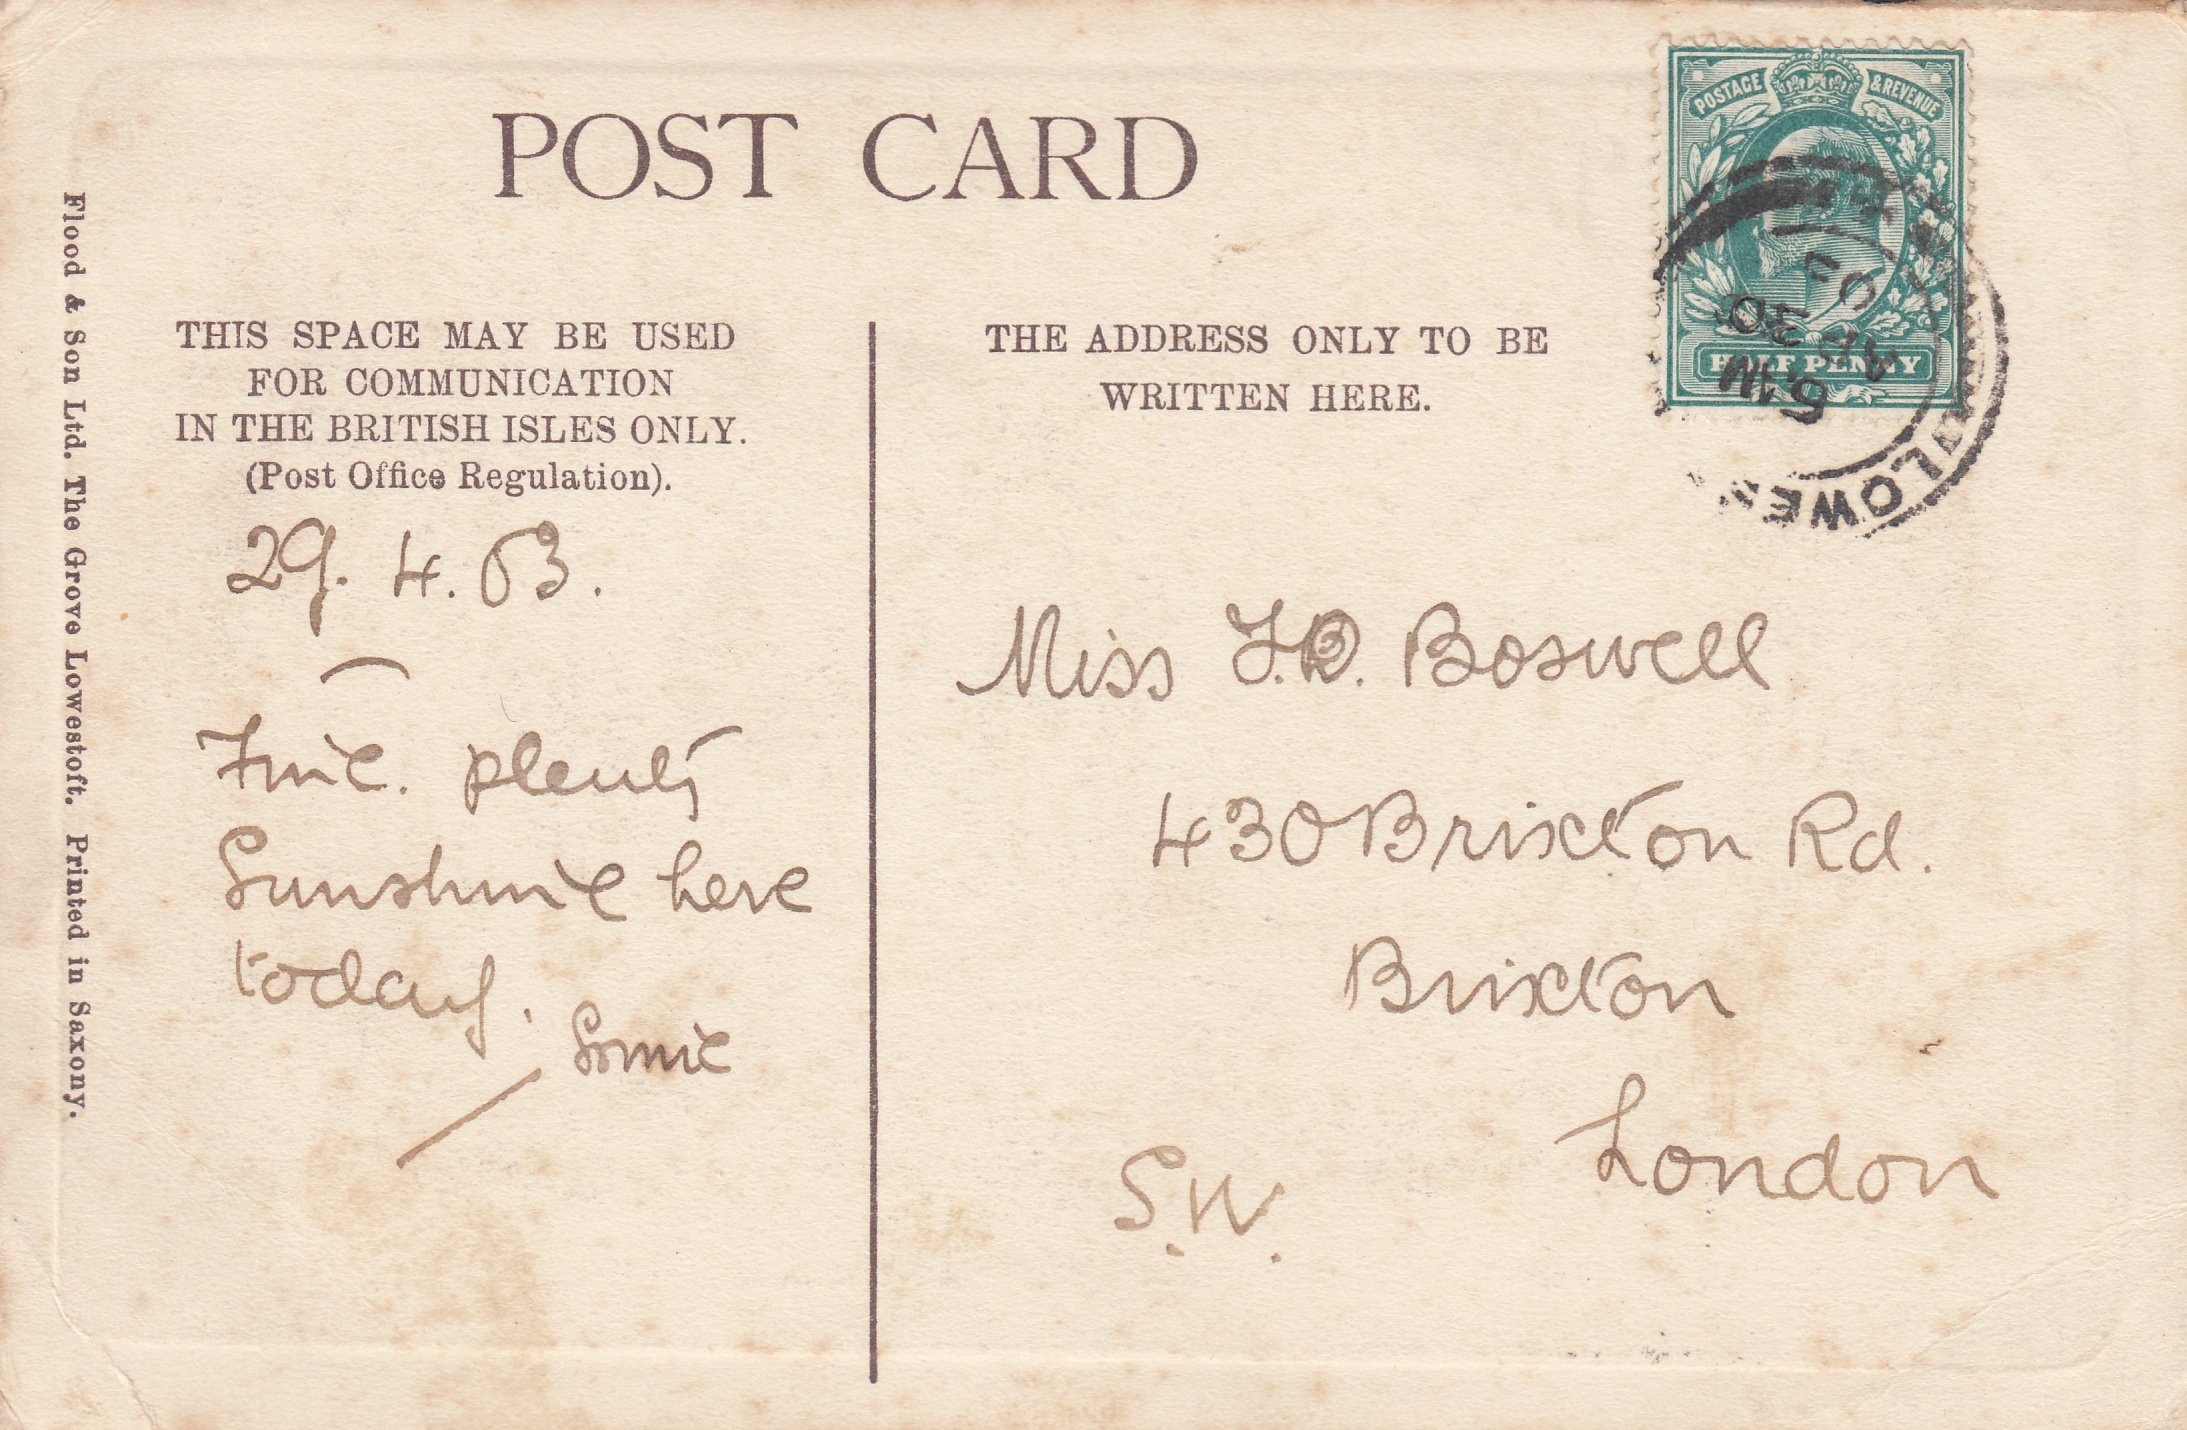 POST CARD
POSTAGE & REVENUE
HALF PENNY
THIS SPACE MAY BE USED
FOR COMMUNICATION
IN THE BRITISH ISLES ONLY.
(Post Office Regulation).
29. 4. 03.
Fine. plenty
Sunshine here
today.
THE ADDRESS ONLY TO BE
WRITTEN HERE.
Miss Boswell
430 Brixton Rd.
Brixton
London
S.W.
Flood & Son Ltd. The Grove Lowestoft. Printed in Saxony.
AP 30